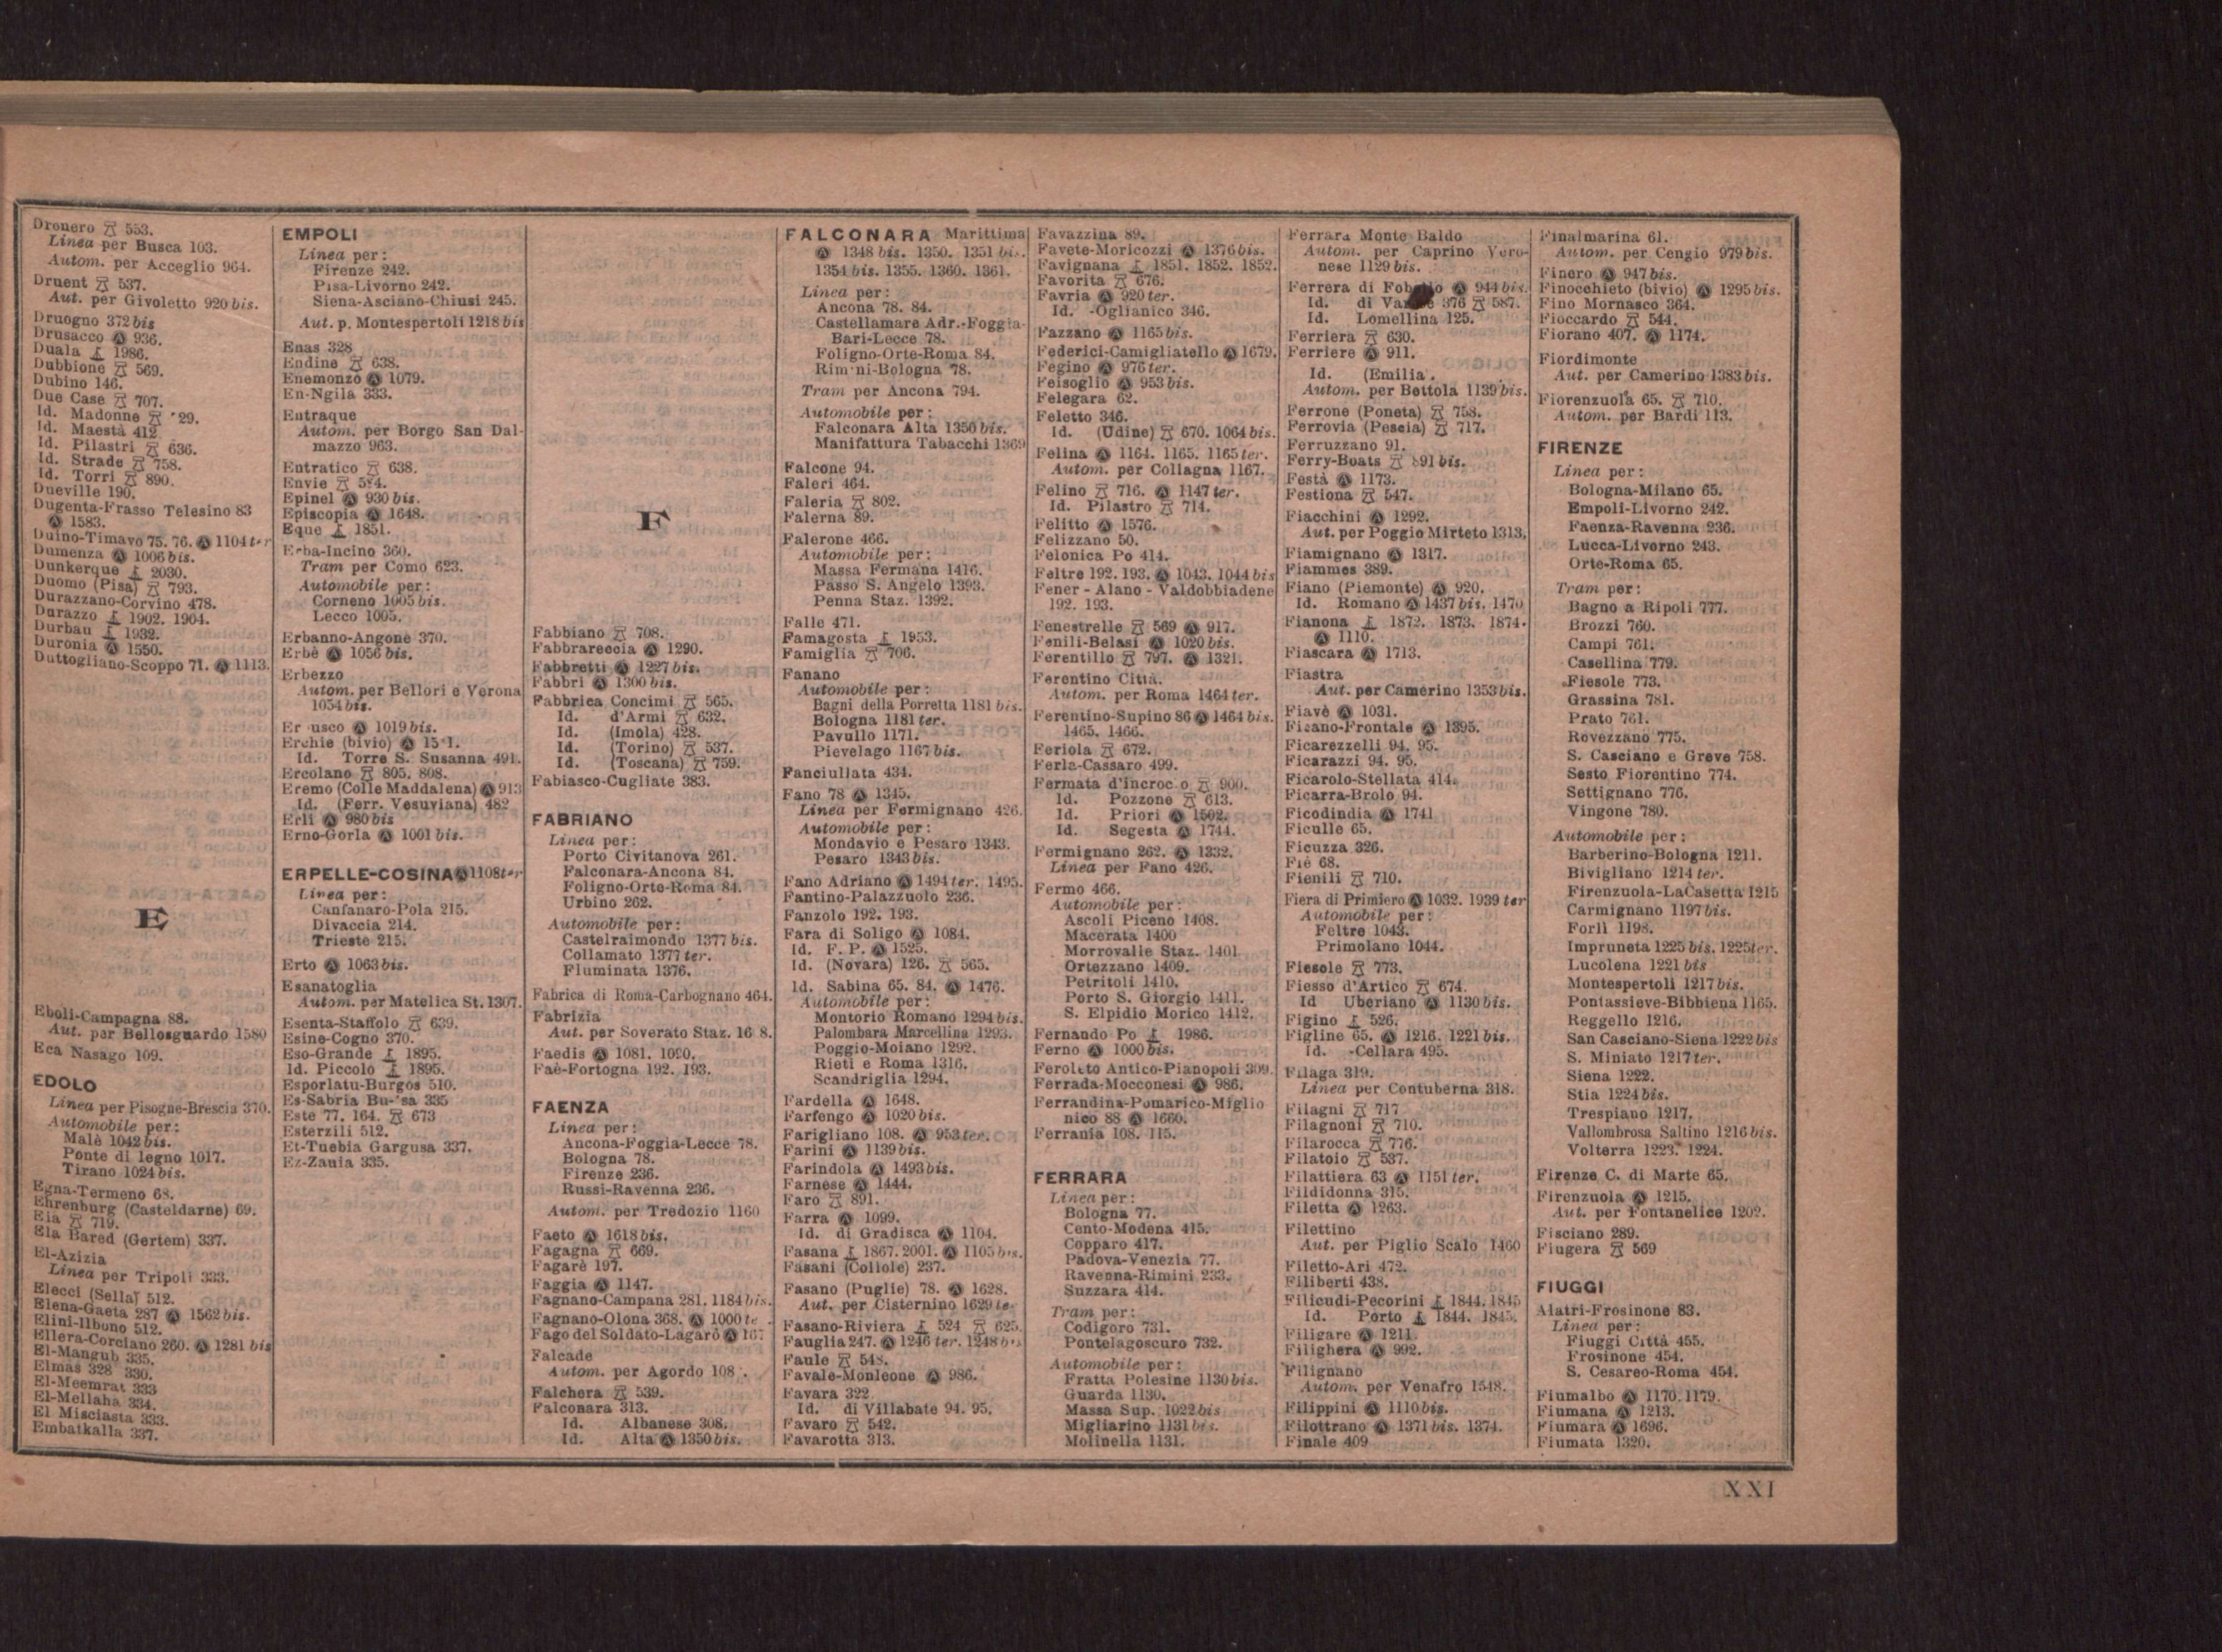 Dronero 553.
Linea per Busca 103.
Autom. per Acceglio 964.
Druent 537.
Aut. per Givoletto 920 bis.
Druogno 372 bis
Drusacco Ⓐ 936.
Duala 1986.
Dubbione 569.
Dubino 146.
Due Case 707.
Id. Madonne 29.
Id. Maestà 412
Id. Pilastri 636.
Id. Strade 758.
Id. Torri 890.
Dueville 190.
Dugenta-Frasso Telesino 83
Ⓐ 1583.
Duino-Timavo 75. 76. Ⓐ 1104 ter
Dumenza Ⓐ 1006 bis.
Dunkerque 2030.
Duomo (Pisa) 793.
Durazzano-Corvino 478.
Durazzo 1902. 1904.
Durbau 1932.
Duronia Ⓐ 1550.
Duttogliano-Scoppo 71. Ⓐ 1113.
E
Eboli-Campagna 88.
Aut. per Bellosguardo 1580
Eca Nasago 109.
EDOLO
Linea per Pisogne-Brescia 370.
Automobile per:
Malè 1042 bis.
Ponte di legno 1017.
Tirano 1024 bis.
Egna-Termeno 68.
Ehrenburg (Casteldarne) 69.
Eia 719.
Ela Bared (Gertem) 337.
El-Azizia
Linea per Tripoli 333.
Elecci (Sella) 512.
Elena-Gaeta 287 Ⓐ 1562 bis.
Elini-Ilbono 512.
Ellera-Corciano 260. Ⓐ 1281 bis
El-Mangub 335.
Elmas 328 330.
El-Meemrat 333
El-Mellaha 334.
El Misciasta 333.
Embatkalla 337.
EMPOLI
Linea per:
Firenze 242.
Pisa-Livorno 242.
Siena-Asciano-Chiusi 245.
Aut. p. Montespertoli 1218 bis
Enas 328
Endine 638.
Enemonzo Ⓐ 1079.
En-Ngila 333.
Entraque
Autom. per Borgo San Dal-
mazzo 963.
Entratico 638.
Envie
Epinel Ⓐ 930 bis.
Episcopia Ⓐ 1648.
Eque 1851.
Erba-Incino 360.
Tram per Como 623.
Automobile per:
Corneno 1005 bis.
Lecco 1005.
Erbanno-Angone 370.
Erbè Ⓐ 1056 bis.
Erbezzo
Autom. per Bellori e Verona
1054 bis.
Ⓐ 1019 bis.
Erchie (bivio) Ⓐ
Id. Torre S. Susanna 491.
Ercolano 805. 808.
Eremo (Colle Maddalena) Ⓐ 913
Id. (Ferr. Vesuviana) 482
Erli Ⓐ 980 bis
Erno-Gorla Ⓐ 1001 bis.
ERPELLE-COSINA Ⓐ 1108 ter
Linea per:
Canfanaro-Pola 215.
Divaccia 214.
Trieste 215.
Erto Ⓐ 1063 bis.
Esanatoglia
Autom. per Matelica St. 1307.
Esenta-Staffolo 639.
Esine-Cogno 370.
Eso-Grande 1895.
Id. Piccolo 1895.
Esporlatu-Burgos 510.
Es-Sabria 335
Este 77. 164. 673
Esterzili 512.
Et-Tuebia Gargusa 337.
Ez-Zauia 335.
F
Fabbiano 708.
Fabbrareccia Ⓐ 1290.
Fabbretti Ⓐ 1227 bis.
Fabbri Ⓐ 1300 bis.
Fabbrica Concimi 565.
Id. d'Armi 632.
Id. (Imola) 428.
Id. (Torino) 537.
Id. (Toscana) 759.
Fabiasco-Cugliate 383.
FABRIANO
Linea per:
Porto Civitanova 261.
Falconara-Ancona 84.
Foligno-Orte-Roma 84.
Urbino 262.
Automobile per:
Castelraimondo 1377 bis.
Collamato 1377 ter.
Fiuminata 1376.
Fabrica di Roma-Carbognano 464.
Fabrizia
Aut. per Soverato Staz.
Faedis Ⓐ 1081. 1090.
Faè-Fortogna 192. 193.
FAENZA
Linea per:
Ancona-Foggia-Lecce 78.
Bologna 78.
Firenze 236.
Russi-Ravenna 236.
Autom. per Tredozio 1160
Faeto Ⓐ 1618 bis.
Fagagna 669.
Fagarè 197.
Faggia Ⓐ 1147.
Fagnano-Campana 281. 1184 bis.
Fagnano-Olona 368. Ⓐ 1000
Fago del Soldato-Lagarò Ⓐ
Falcade
Autom. per Agordo
Falchera 539.
Falconara 313.
Id. Albanese 308.
Id. Alta Ⓐ 1350 bis.
FALCONARA Marittima
Ⓐ 1348 bis. 1350. 1351 bis.
1354 bis. 1355. 1360. 1361.
Linea per:
Ancona 78. 84.
Castellamare Adr.-Foggia-
Bari-Lecce 78.
Foligno-Orte-Roma 84.
Rimini-Bologna 78.
Tram per Ancona 794.
Automobile per:
Falconara Alta 1350 bis.
Manifattura Tabacchi 1369
Falcone 94.
Faleri 464.
Faleria 802.
Falerna 89.
Falerone 466.
Automobile per:
Massa Fermana 1416.
Passo S. Angelo 1393.
Penna Staz. 1392.
Falle 471.
Famagosta 1953.
Famiglia 706.
Fanano
Automobile per:
Bagni della Porretta 1181 bis.
Bologna 1181 ter.
Pavullo 1171.
Pievelago 1167 bis.
Fanciullata 434.
Fano 78 Ⓐ 1345.
Linea per Fermignano 426.
Automobile per:
Mondavio e Pesaro 1343.
Pesaro 1343 bis.
Fano Adriano Ⓐ 1494 ter. 1495.
Fantino-Palazzuolo 236.
Fanzolo 192. 193.
Fara di Soligo Ⓐ 1084.
Id. F. P. Ⓐ 1525.
Id. (Novara) 126. 565.
Id. Sabina 65. 84. Ⓐ 1476.
Automobile per:
Montorio Romano 1294 bis.
Palombara Marcellina 1293.
Poggio-Moiano 1292.
Rieti e Roma 1316.
Scandriglia 1294.
Fardella Ⓐ 1648.
Farfengo Ⓐ 1020 bis.
Farigliano 108. Ⓐ 953 ter.
Farini Ⓐ 1139 bis.
Farindola Ⓐ 1493 bis.
Farnese Ⓐ 1444.
Faro 891.
Farra Ⓐ 1099.
Id. di Gradisca Ⓐ 1104.
Fasana 1867. 2001. Ⓐ 1105 bis.
Fasani (Coliole) 237.
Fasano (Puglie) 78. Ⓐ 1628.
Aut. per Cisternino 1629
Fasano-Riviera 524 625.
Fauglia 247. Ⓐ 1246 ter. 1248
Faule 548.
Favale-Monleone Ⓐ 986.
Favara 322
Id. di Villabate 94. 95.
Favaro 542.
Favarotta 313.
Favazzina 89.
Favete-Moricozzi Ⓐ 1376 bis.
Favignana 1851. 1852. 1852.
Favorita 676.
Favria Ⓐ 920 ter.
Id. -Oglianico 346.
Fazzano Ⓐ 1165 bis.
Federici-Camigliatello Ⓐ 1679.
Fegino Ⓐ 976 ter.
Feisoglio Ⓐ 953 bis.
Felegara 62.
Feletto 346.
Id. (Udine) 670. 1064 bis.
Felina Ⓐ 1164. 1165. 1165 ter.
Autom. per Collagna 1167.
Felino 716. Ⓐ 1147 ter.
Id. Pilastro 714.
Felitto Ⓐ 1576.
Felizzano 50.
Felonica Po 414.
Feltre 192. 193. Ⓐ 1043. 1044 bis
Fener - Alano - Valdobbiadene
192. 193.
Fenestrelle 569 Ⓐ 917.
Fenili-Belasi Ⓐ 1020 bis.
Ferentillo 797. Ⓐ 1321.
Ferentino Città.
Autom. per Roma 1464 ter.
Ferentino-Supino 86 Ⓐ 1464 bis.
1465. 1466.
Feriola 672.
Ferla-Cassaro 499.
Fermata d'incroc o 900.
Id. Pozzone 613.
Id. Priori Ⓐ 1502.
Id. Segesta Ⓐ 1744.
Fermignano 262. Ⓐ 1332.
Linea per Fano 426.
Fermo 466.
Automobile per:
Ascoli Piceno 1408.
Macerata 1400
Morrovalle Staz. 1401
Ortezzano 1409.
Petritoli 1410.
Porto S. Giorgio 1411.
S. Elpidio Morico 1412.
Fernando Po 1986.
Ferno Ⓐ 1000 bis.
Feroleto Antico-Pianopoli 309.
Ferrada-Mocconesi Ⓐ 986.
Ferrandina-Pomarico-Miglio
nico 88 Ⓐ 1660.
Ferrania 108. 115.
FERRARA
Linea per:
Bologna 77.
Cento-Modena 415.
Copparo 417.
Padova-Venezia 77.
Ravenna-Rimini 233.
Suzzara 414.
Tram per:
Codigoro 731.
Pontelagoscuro 732.
Automobile per:
Fratta Polesine 1130 bis.
Guarda 1130.
Massa Sup. 1022 bis
Migliarino 1131 bis.
Molinella 1131.
Ferrara Monte Baldo
Autom. per Caprino Vero-
nese 1129 bis.
Ferrera di Ⓐ 944 bis.
Id. di 376 587.
Id. Lomellina 125.
Ferriera 630.
Ferriere Ⓐ 911.
Id. (Emilia.
Autom. per Bettola 1139 bis.
Ferrone (Poneta) 758.
Ferrovia (Pescia) 717.
Ferruzzano 91.
Ferry-Boats 891 bis.
Festà Ⓐ 1173.
Festiona 547.
Fiacchini Ⓐ 1292.
Aut. per Poggio Mirteto 1313.
Fiamignano Ⓐ 1317.
Fiammes 389.
Fiano (Piemonte) Ⓐ 920.
Id. Romano Ⓐ 1437 bis. 1470
Fianona 1872. 1873. 1874.
Ⓐ 1110.
Fiascara Ⓐ 1713.
Fiastra
Aut. per Camerino 1353 bis.
Fiavè Ⓐ 1031.
Ficano-Frontale Ⓐ 1395.
Ficarezzelli 94. 95.
Ficarazzi 94. 95.
Ficarolo-Stellata 414.
Ficarra-Brolo 94.
Ficodindia Ⓐ 1741
Ficulle 65.
Ficuzza 326.
Fié 68.
Fienili 710.
Fiera di Primiero Ⓐ 1032. 1939 ter
Automobile per:
Feltre 1043.
Primolano 1044.
Fiesole 773.
Fiesso d'Artico 674.
Id Uberiano Ⓐ 1130 bis.
Figino 526.
Figline 65. Ⓐ 1216. 1221 bis.
Id. -Cellara 495.
Filaga 319.
Linea per Contuberna 318.
Filagni 717
Filagnoni 710.
Filarocca 776.
Filatoio 537.
Filattiera 63 Ⓐ 1151 ter.
Fildidonna 315.
Filetta Ⓐ 1263.
Filettino
Aut. per Piglio Scalo 1460
Filetto-Ari 472.
Filiberti 438.
Filicudi-Pecorini 1844. 1845
Id. Porto 1844. 1845.
Filigare Ⓐ 1211.
Filighera Ⓐ 992.
Filignano
Autom. per Venafro 1548.
Filippini Ⓐ 1110 bis.
Filottrano Ⓐ 1371 bis. 1374.
Finale 409
Finalmarina 61.
Autom. per Cengio 979 bis.
Finero Ⓐ 947 bis.
Finocchieto (bivio) Ⓐ 1295 bis.
Fino Mornasco 364.
Fioccardo 544.
Fiorano 407. Ⓐ 1174.
Fiordimonte
Aut. per Camerino 1383 bis.
Fiorenzuola 65. 710.
Autom. per Bardi 113.
FIRENZE
Linea per:
Bologna-Milano 65.
Empoli-Livorno 242.
Faenza-Ravenna 236.
Lucca-Livorno 243.
Orte-Roma 65.
Tram per:
Bagno a Ripoli 777.
Brozzi 760.
Campi 761.
Casellina 779.
Fiesole 773.
Grassina 781.
Prato 761.
Rovezzano 775.
S. Casciano e Greve 758.
Sesto Fiorentino 774.
Settignano 776.
Vingone 780.
Automobile per:
Barberino-Bologna 1211.
Bivigliano 1214 ter.
Firenzuola-LaCasetta 1215
Carmignano 1197 bis.
Forlì 1198.
Impruneta 1225 bis. 1225 ter.
Lucolena 1221 bis
Montespertoli 1217 bis.
Pontassieve-Bibbiena 1165.
Reggello 1216.
San Casciano-Siena 1222 bis
S. Miniato 1217 ter.
Siena 1222.
Stia 1224 bis.
Trespiano 1217.
Vallombrosa Saltino 1216 bis.
Volterra 1223. 1224.
Firenze C. di Marte 65.
Firenzuola Ⓐ 1215.
Aut. per Fontanelice 1202.
Fisciano 289.
Fiugera 569
FIUGGI
Alatri-Frosinone 83.
Linea per:
Fiuggi Città 455.
Frosinone 454.
S. Cesareo-Roma 454.
Fiumalbo Ⓐ 1170. 1179.
Fiumana Ⓐ 1213.
Fiumara Ⓐ 1696.
Fiumata 1320.
XXI